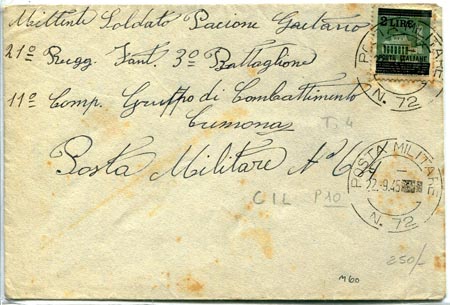 Mittente Soldato Pacione Gaetario
21º Regg. Fant. 3º Battaglione
11º Comp. Gruppo di Combattimento
Cremona
Posta Militare Nº 6
2 LIRE
POSTE ITALIANE
POSTA MILITARE
N. 72
POSTA MILITARE
22.-9.45
N. 72
Ti 4
CIL P10
250/-
M60